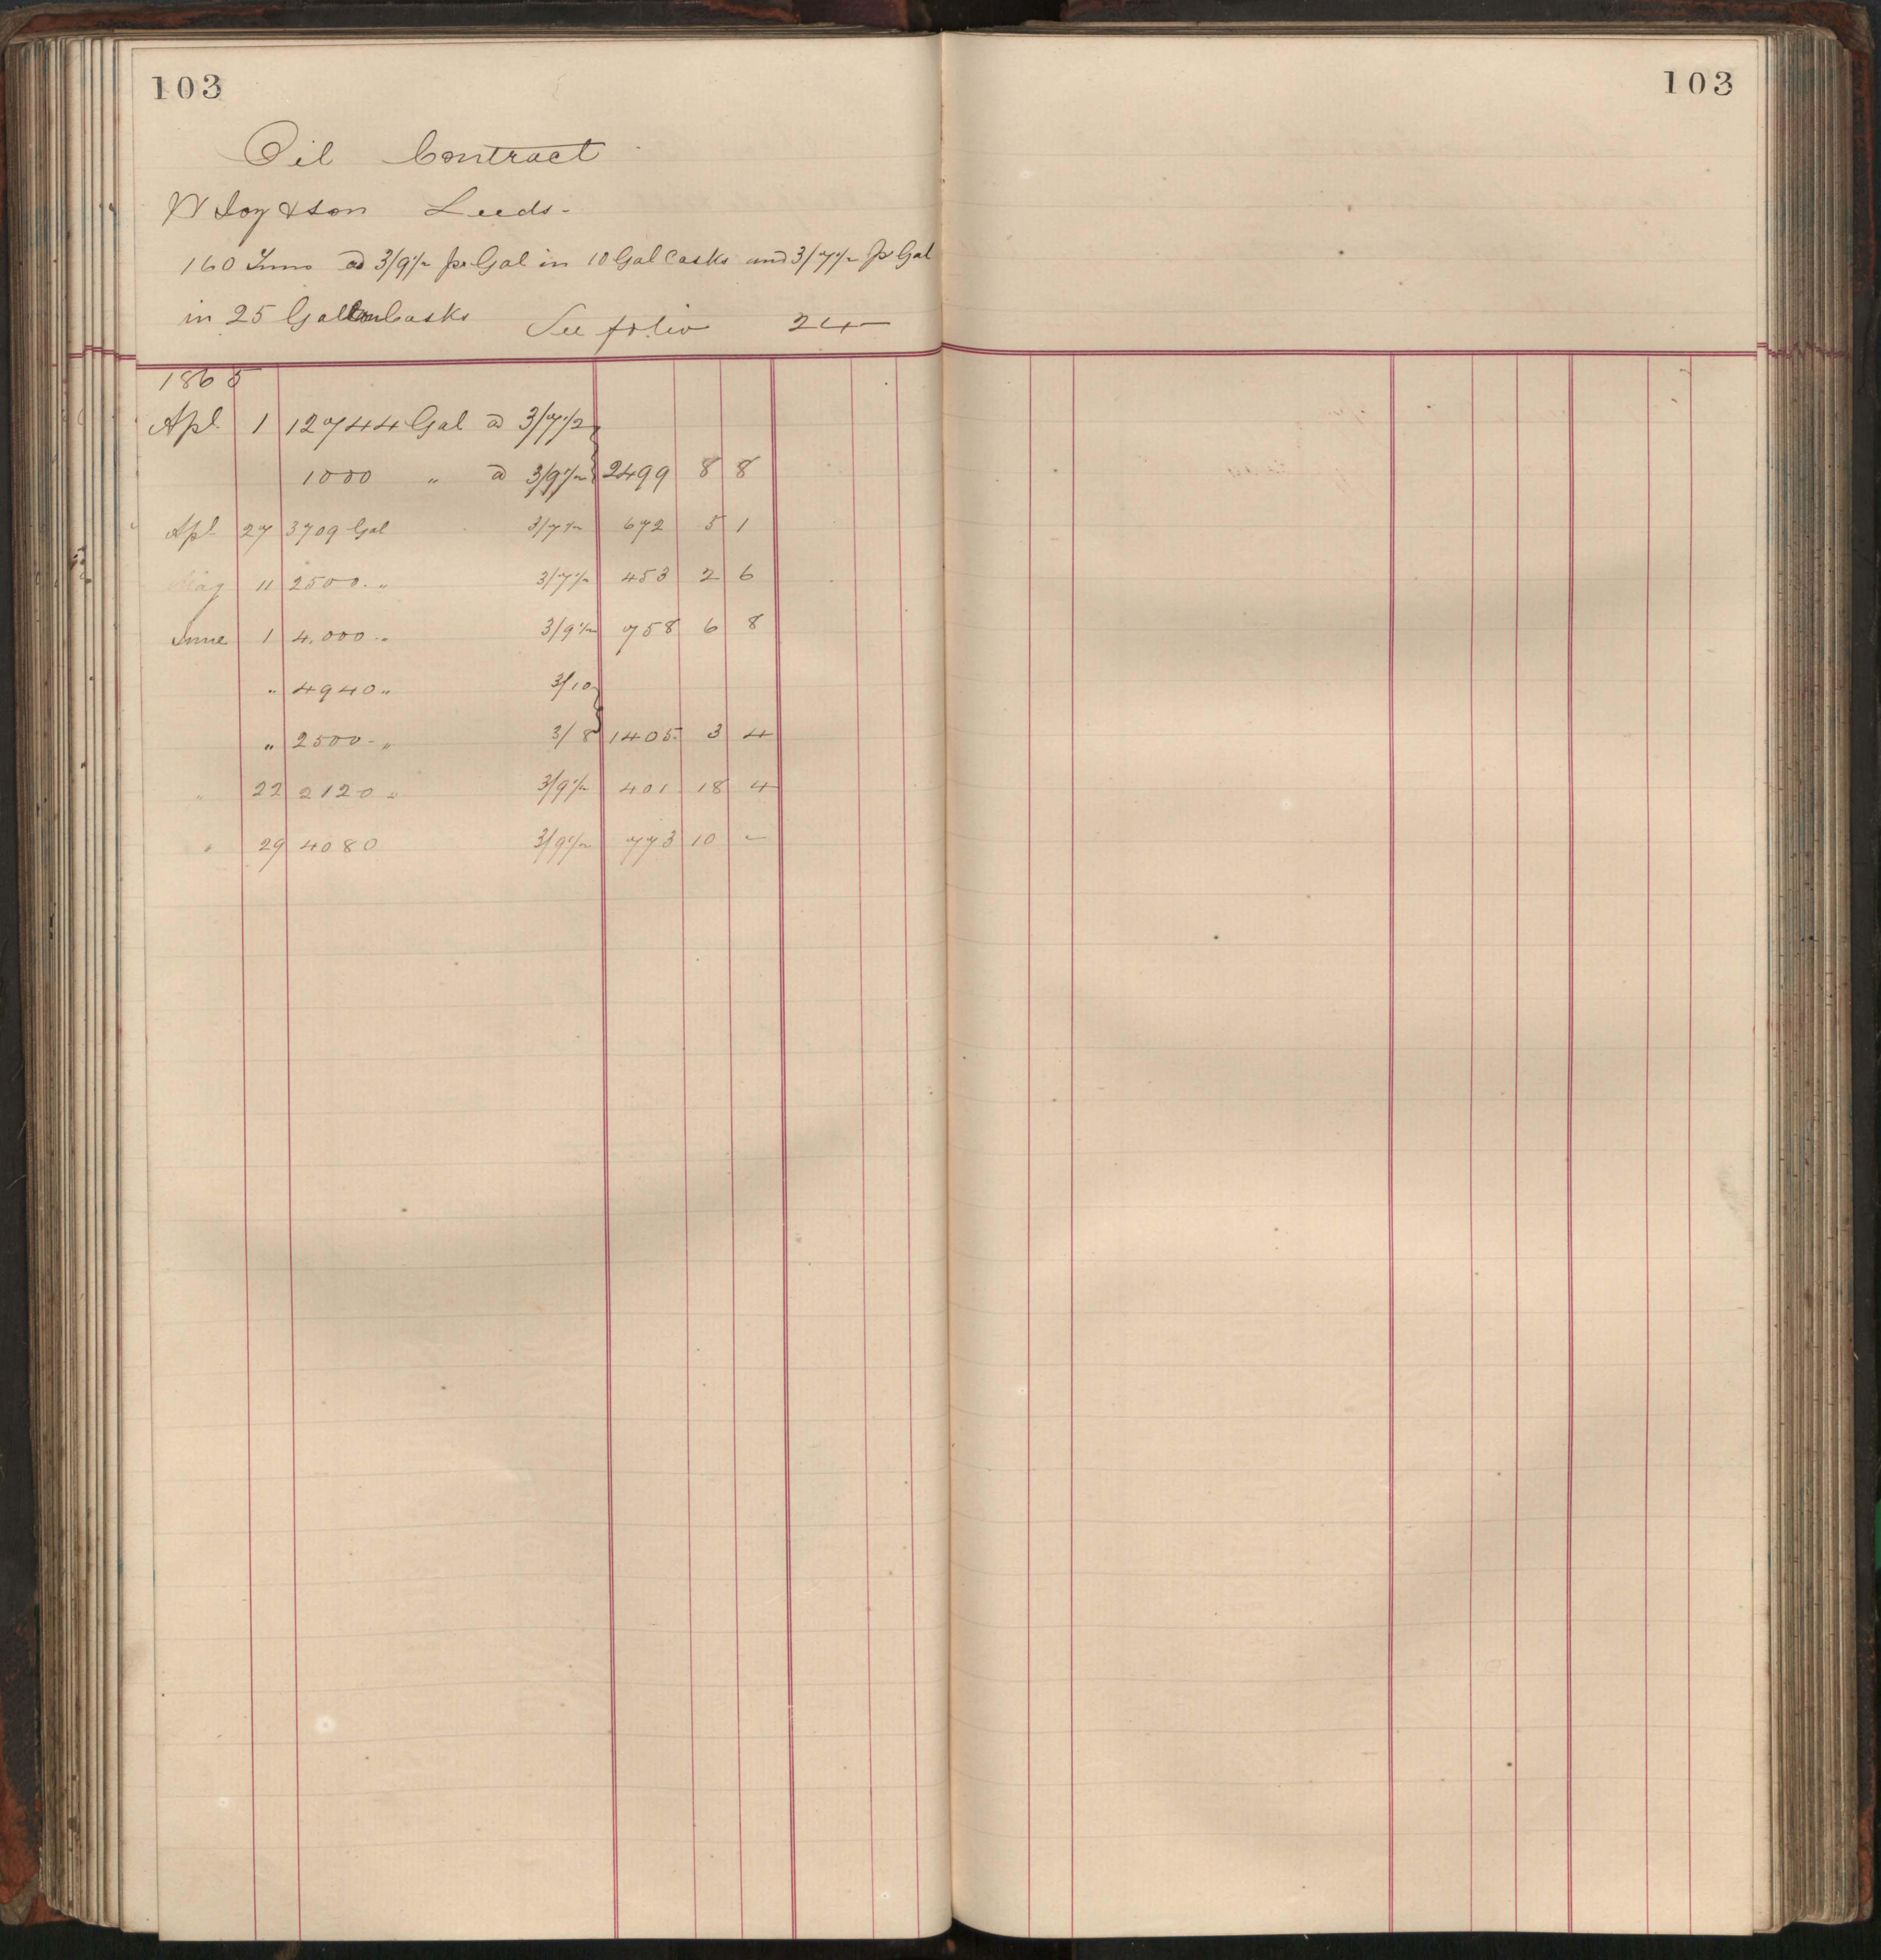 103
103
Oil Contract
W Joy & Son Leeds-
160 Tuns @ 3/9½ pr Gal in 10 Gal Casks and 3/7½ pr Gal
in 25 Gallon Casks See folio 24
1865
Apl. 1 12744 Gal @ 3/7½
1000 " @ 3/9½ 2499 8 8
Apl. 27 3709 Gal 3/7½ 672 5 1
May 11 2500 " 3/7½ 453 2 6
June 1 4,000 " 3/9½ 758 6 8
" 4940 " 3/10
" 2500 " 3/8 1405 3 4
" 22 2120 " 3/9½ 401 18 4
" 29 4080 3/9½ 773 10 -